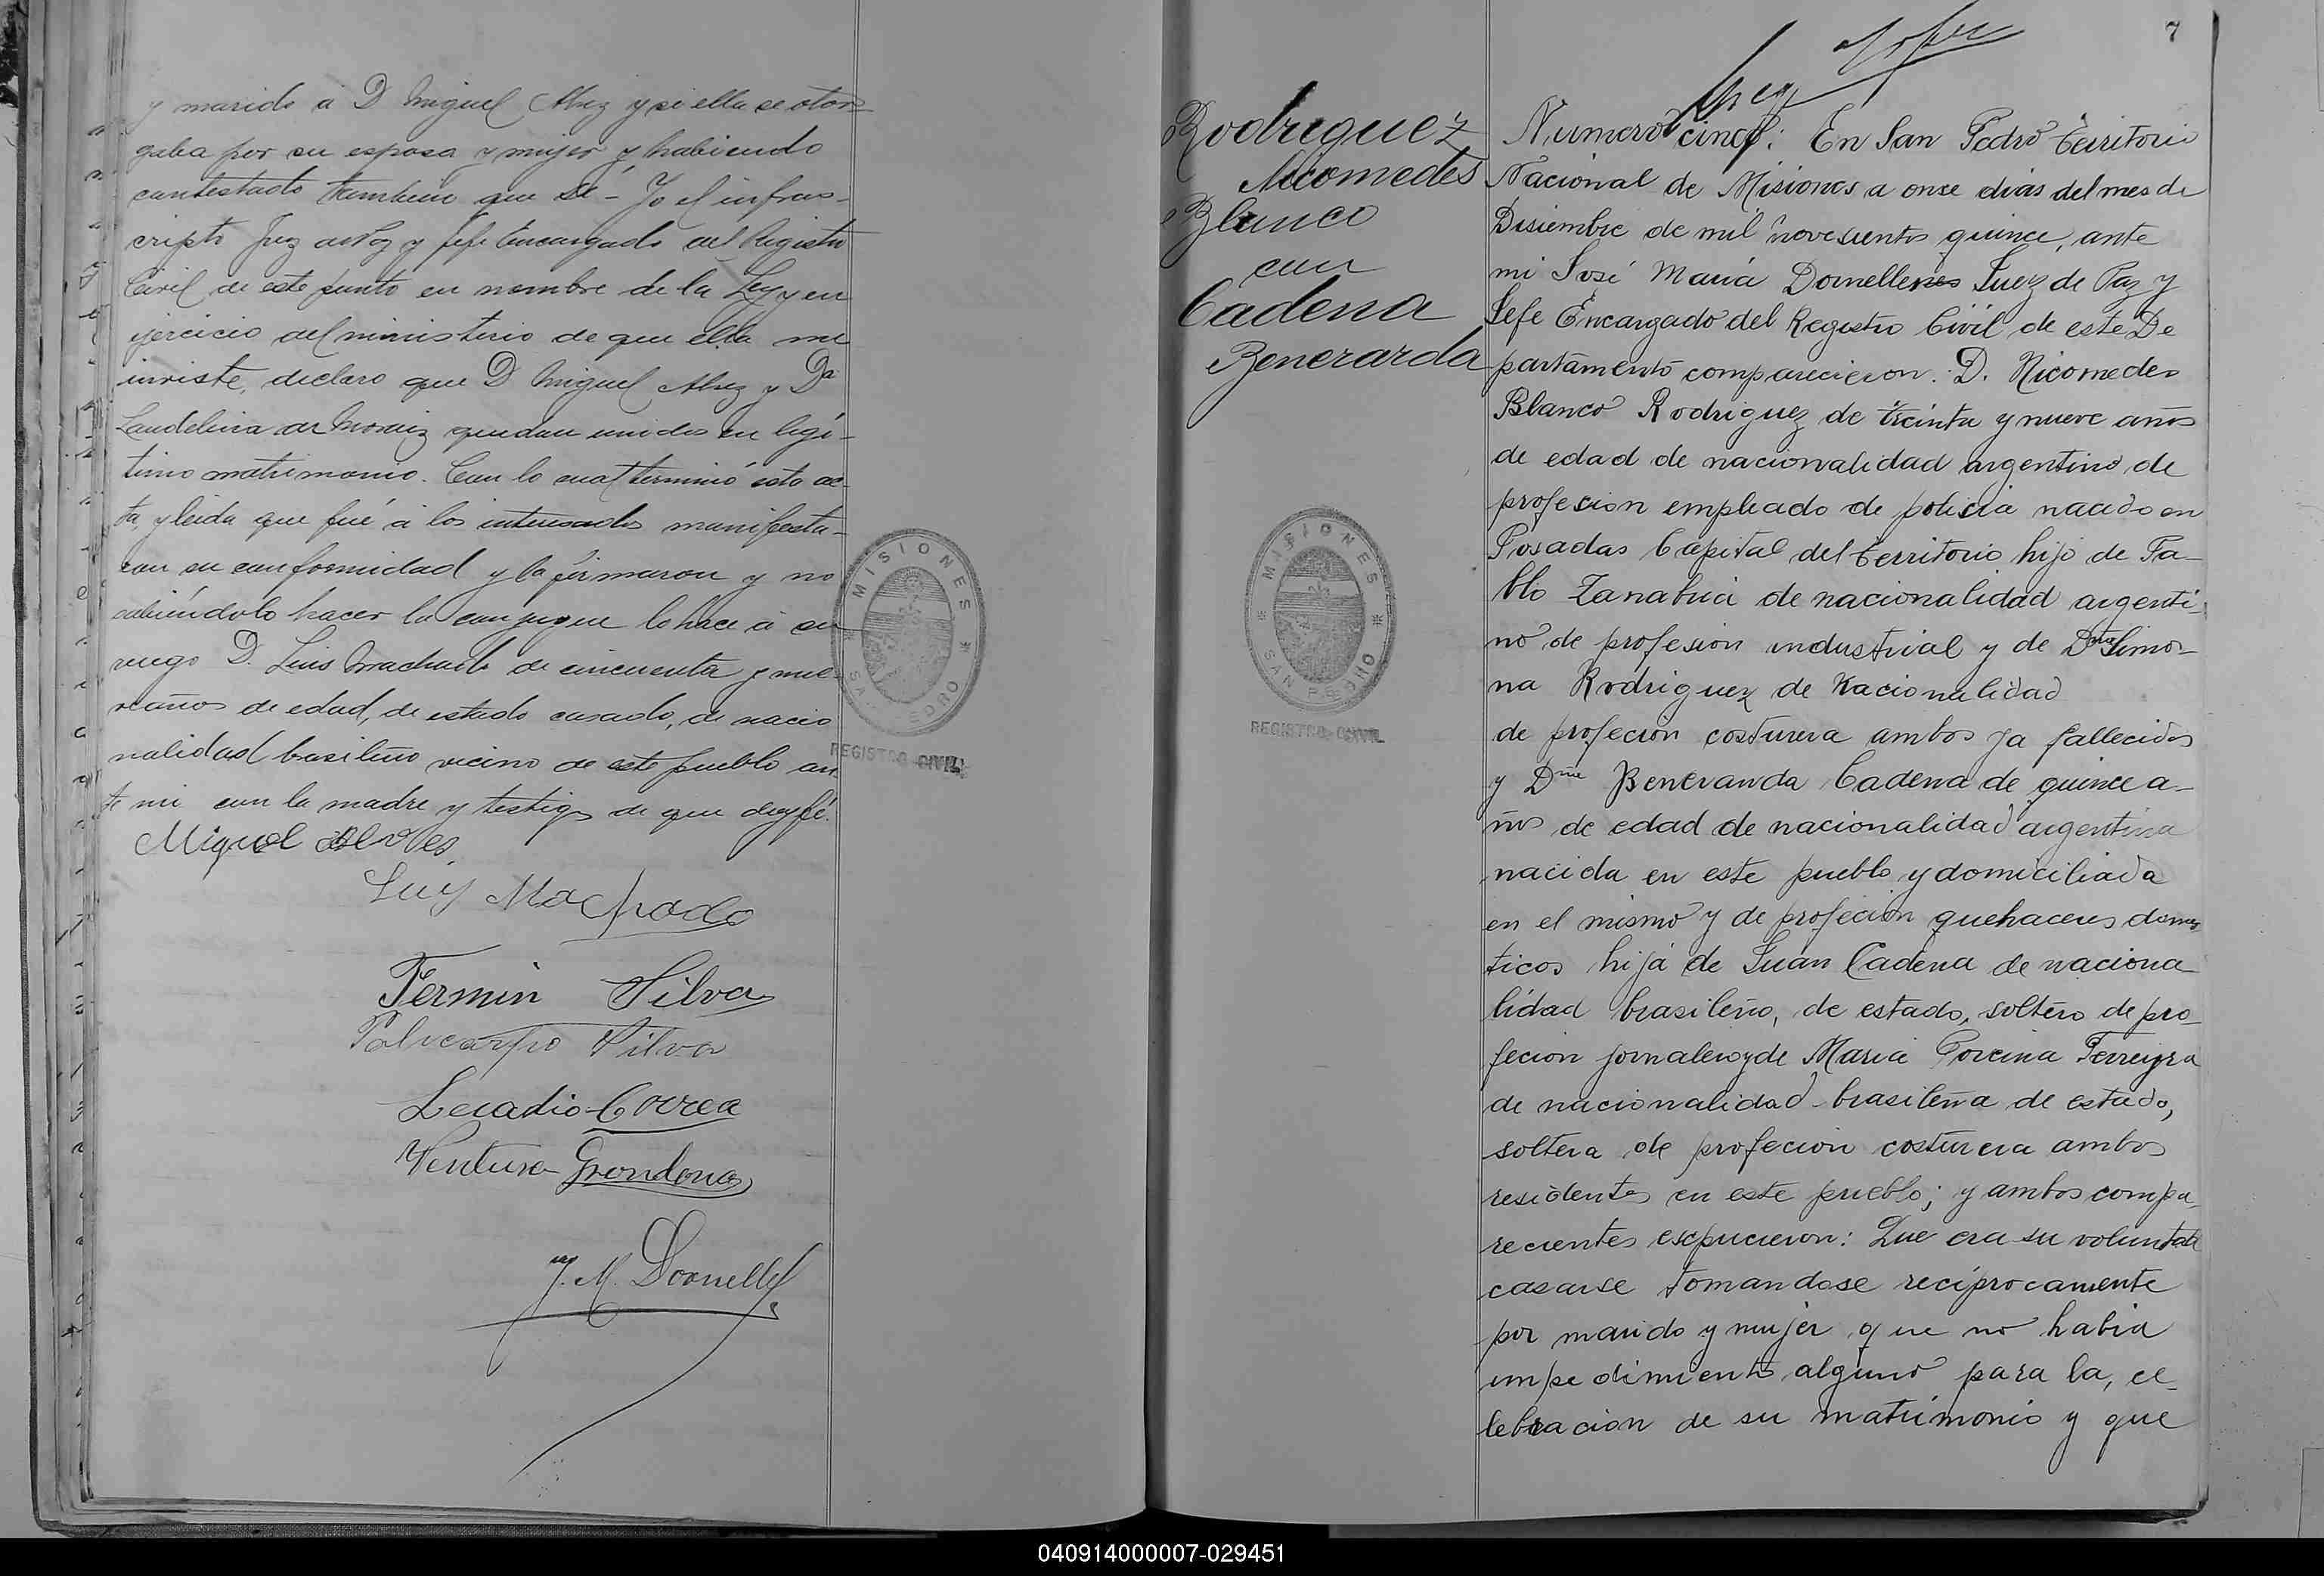 y marido á D Miguel Alvez y si ella se otor-
gaba por su esposa y mujer y habiendo
contestado tambien que Si - Yo el infras-
cripto Juez de Paz y Jefe Encargado del Registro
Civil de este punto en nombre de la Ley y en
ejercicio del ministerio de que ella me
inviste, declaro que D Miguel Alvez y Da
Laudelina de Moraiz quedan unidos en legí-
timo matrimonio. Con lo cual terminó esta ac-
ta, y leida que fué á los interesados manifesta-
ron su conformidad y la firmaron y no
sabiéndolo hacer la conyugue lo hace á su
ruego D. Luis Machado de cincuenta y nue-
ve años de edad, de estado casado, de nacio
nalidad brasileño vicino de este pueblo an
te mi con la madre y testigos de que doy fé.
Miguel Alves
Luiz Machado
Fermin Silva
Policarpo Silva
Lecadio Correa
Ventura Grondona
J. M. Dornelles
MISIONES
SAN PEDRO
REGISTRO CIVIL
7
Rodriguez
Nicomedes
Blanco
con
Cadena
Benerarda
MISIONES
SAN PEDRO
REGISTRO CIVIL
Numero cinco: En San Pedro Territorio
Nacional de Misiones a onse dias del mes de
Disiembre de mil novesientos quince, ante
mi José Maria Dornelles Juez de Paz y
Jefe Encargado del Registro Civil de este De
partamento comparecieron: D. Nicomedes
Blanco Rodriguez de treinta y nueve años
de edad de nacionalidad argentino de
profesion empleado de policia nacido en
Posadas Capital del territorio hijo de Pa-
blo Zanabria de nacionalidad argenti-
no de profesion industrial y de Dña Simo-
na Rodriguez de nacionalidad
de profecion costurera ambos ya fallecidos
y Dña Beneranda Cadena de quince a-
ños de edad de nacionalidad argentina
nacida en este pueblo y domiciliada
en el mismo y de profecion quehaceres domes
ticos hija de Juan Cadena de naciona
lidad brasileño, de estado, soltero de pro-
fecion jornalero y de Maria Porcina Ferreyra
de nacionalidad brasileña de estado,
soltera de profecion costurera ambos
residentes en este pueblo; y ambos compa-
recientes expucieron: Que era su voluntad
casarse tomandose reciprocamente
por marido y mujer que no habia
impedimento alguno para la, ce-
lebracion de su matrimonio y que
040914000007-029451